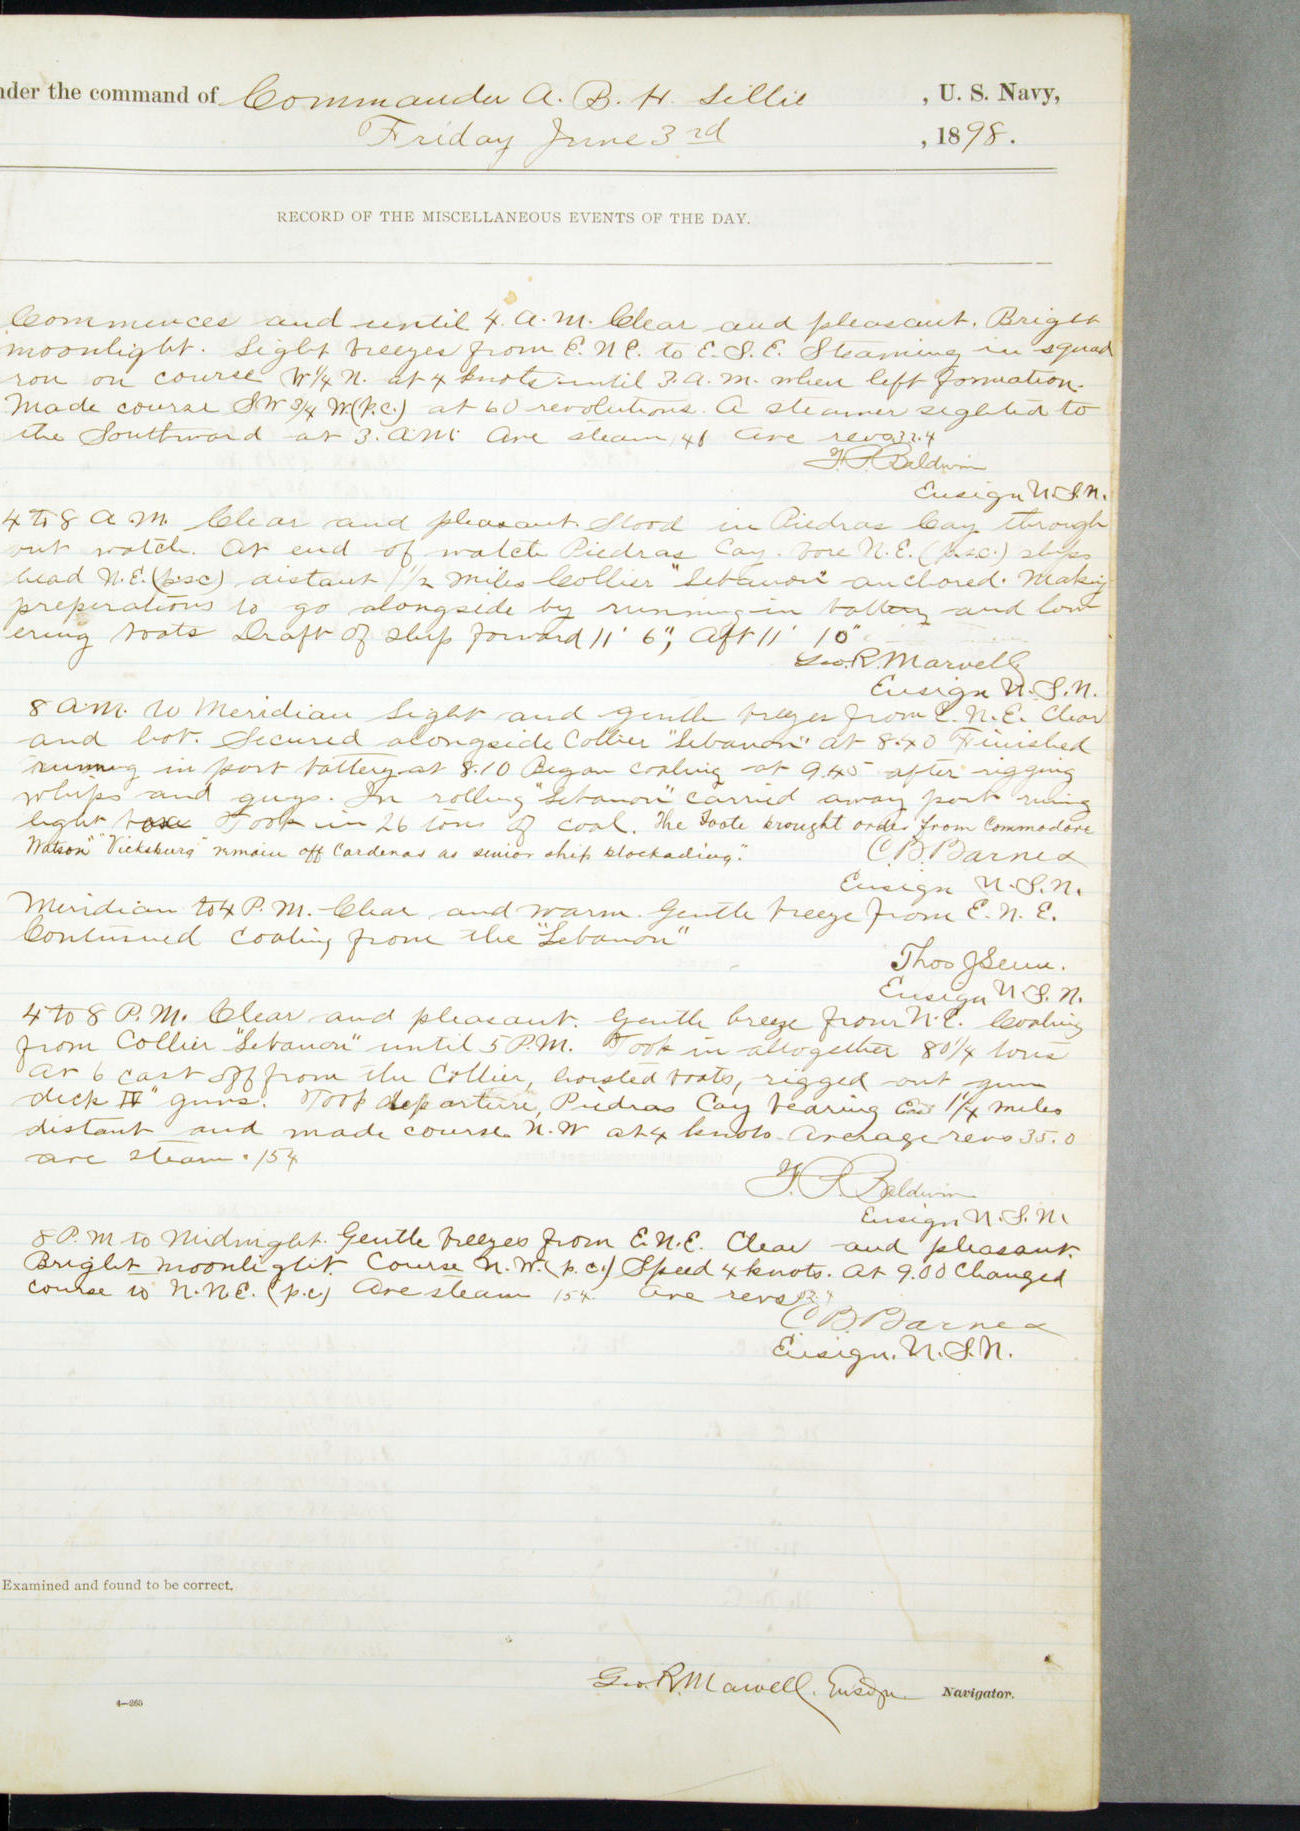 nder the command of Commander A. B. H. Lillie , U. S. Navy,
Friday June 3rd , 1898.
RECORD OF THE MISCELLANEOUS EVENTS OF THE DAY.
Commences and until 4. A. M. Clear and pleasant. Bright
moonlight. Light breezes from E. N E. to E. S. E. Steaming in squad
ron on course W 1/4 N. at 4 knots until 3. a. m. when left formation.
Made course SW 3/4 W. (p.c.) at 60 revolutions. A steamer sighted to
the Southward at 3. A.M. Ave steam, 41 Ave revs 32.4
F. P. Baldwin
Ensign U. S. N.
4 to 8 A M. Clear and pleasant. Stood in Piedras Cay through
out watch. At end of watch Piedras Cay. bore N. E. (p.s.c.) ships
head N. E. (p.s.c) distant 1 1/2 miles Collier "Lebanon" anchored. Making
preperations to go alongside by running in battery and low
ering boats Draft of ship forward 11' 6", Aft 11' 10"
Geo. R. Marvell
Ensign U. S. N.
8 A.M. to Meridian Light and gentle breezes from E. N. E. Clear
and hot. Secured alongside Collier "Lebanon" at 8.40 Finished
running in port battery at 8.10 Began coaling at 9.45 after rigging
whips and guys. In rolling "Lebanon" carried away port runing
light box Took in 26 tons of coal. The Foote brought order from Commodore
Watson "Vicksburg remain off Cardenas as senior ship blockading".
C. B. Barnes
Ensign U. S. N.
Meridian to 4 P. M. Clear and warm. Gentle breeze from E. N. E.
Continued coaling from the "Lebanon"
Thos J Senn.
Ensign U. S. N.
4 to 8 P. M. Clear and pleasant. Gentle breeze from N. E. Coaling
from Collier "Lebanon" until 5 P.M. Took in altogether 80 1/4 tons
At 6 cast off from the Collier, hoisted boats, rigged out gun
deck IV" guns. Took departure, Piedras Cay bearing 1 1/4 miles
distant and made course N. W at 4 knots. Average revs 35.0
ave steam. 154
F. P. Baldwin
Ensign U. S. N.
8 P. M to Midnight. Gentle breezes from E. N. E. Clear and pleasant.
Bright moonlight. Course N. W. (p. c.) Speed 4 knots. At 9.00 Changed
course to N. N. E. (p.c.) Ave steam 154. Ave revs
C. B. Barnes
Ensign. U. S. N.
Examined and found to be correct.
Geo. R. Marvell. Ensign. Navigator.
4—265